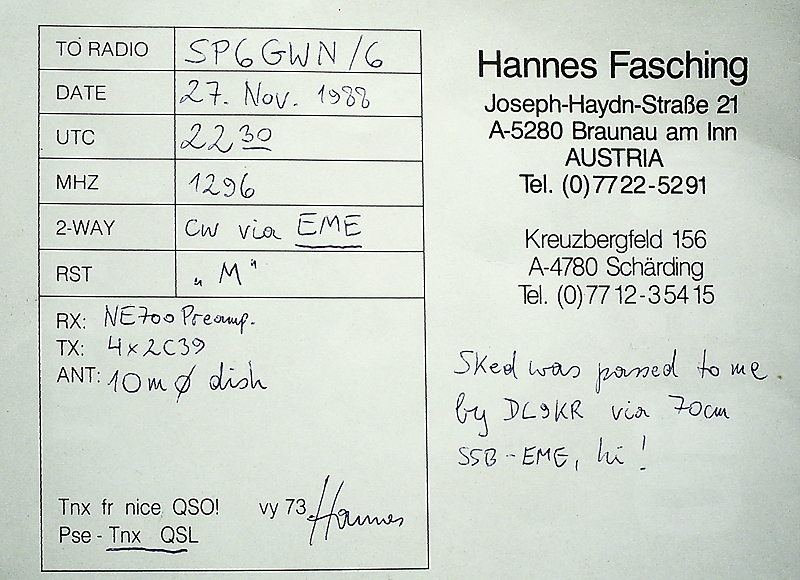 TO RADIO SP6GWN/6
DATE 27. Nov. 1988
UTC 2230
MHZ 1296
2-WAY CW via EME
RST „M"
RX: NE700 Preamp.
TX: 4x2C39
ANT: 10m ø dish
Tnx fr nice QSO! vy 73, Hannes
Pse - Tnx QSL
Hannes Fasching
Joseph-Haydn-Straße 21
A-5280 Braunau am Inn
AUSTRIA
Tel. (0)7722-5291
Kreuzbergfeld 156
A-4780 Schärding
Tel. (0)7712-35415
Sked was passed to me
by DL9KR via 70cm
SSB-EME, hi!